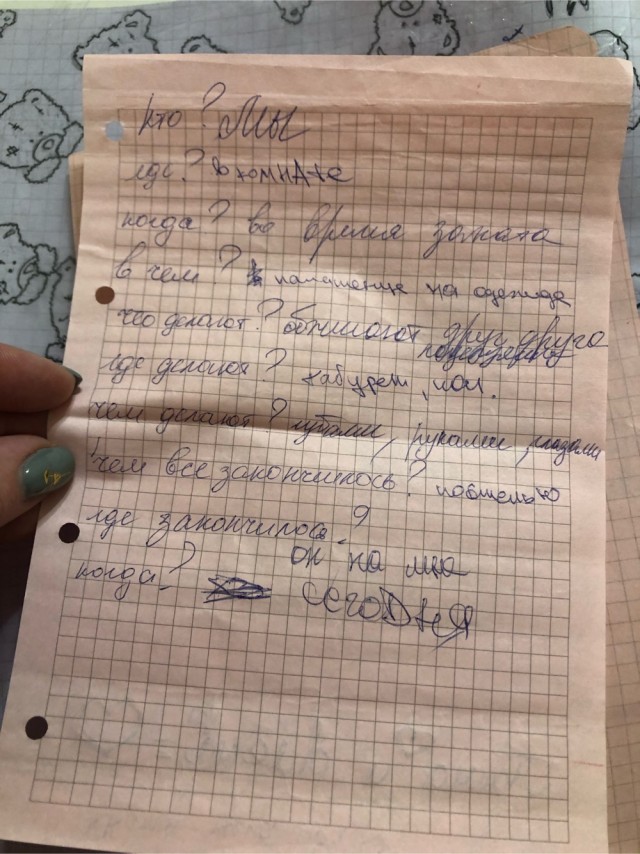 кто? Мы
где? в комнате
когда? во время заката
в чем? на одежде
что делают? друг друга
где делают? табурет, пол.
чем делают? губами, руками, глазами
чем все закончилось? постелью
где закончилось?
он на
когда? сегодня